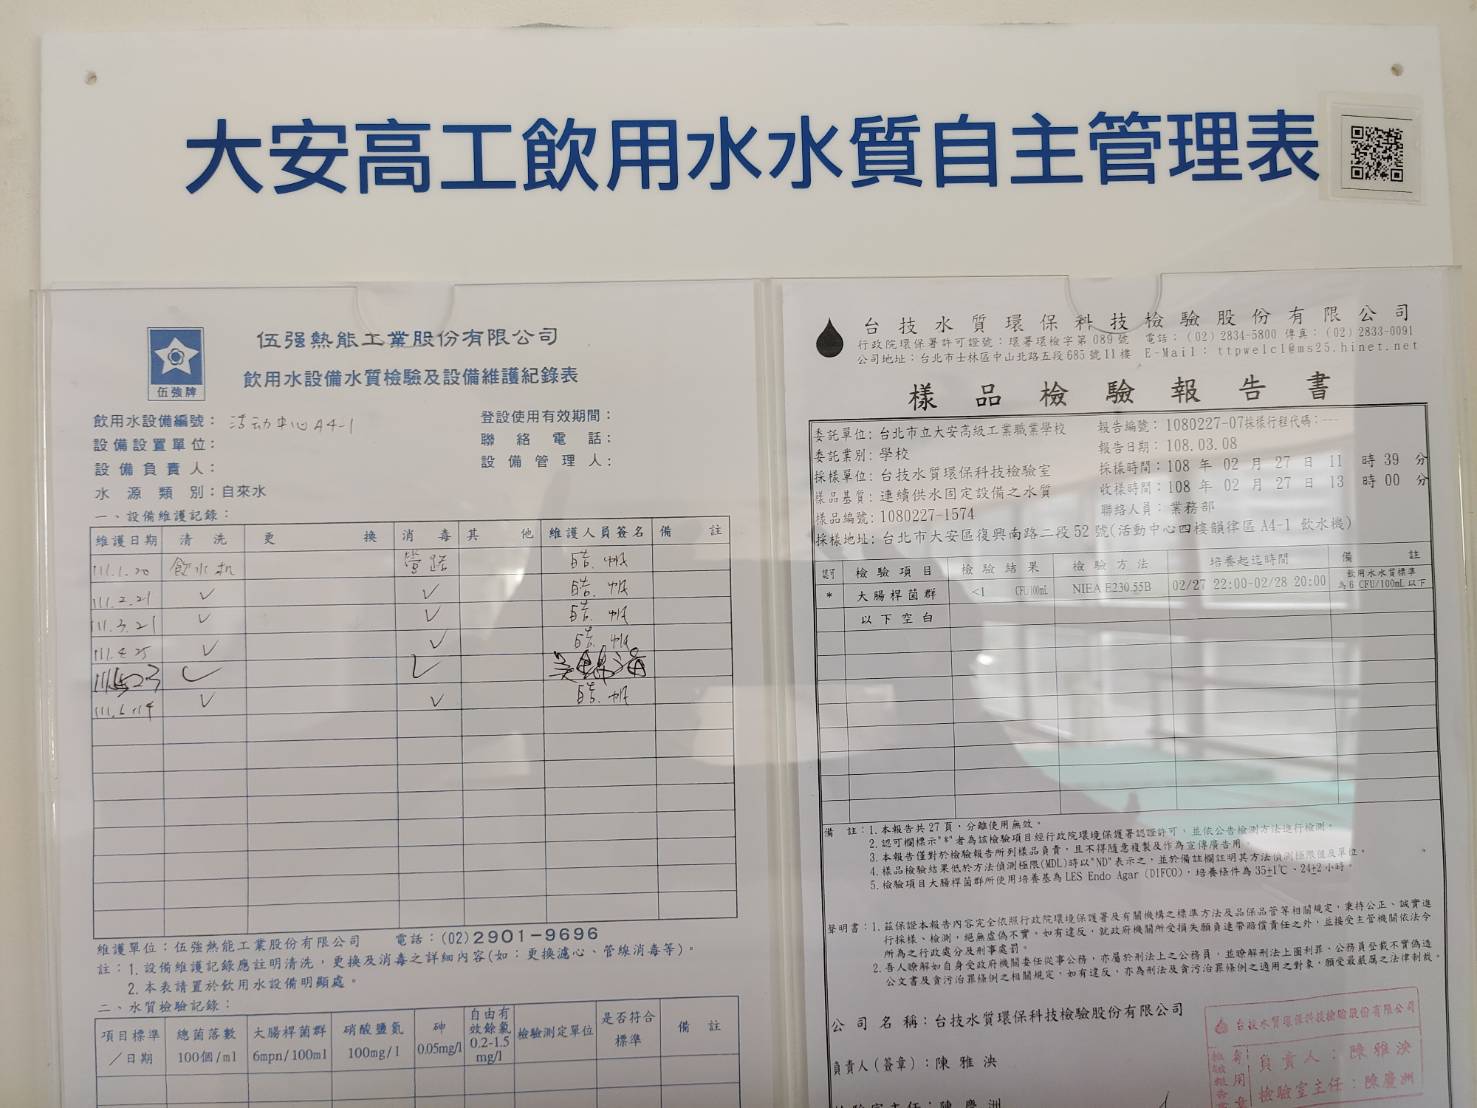 大安高工飲用水水質自主管理表
伍强熱能工業股份有限公司
伍強牌
飲用水設備水質檢驗及設備維護紀錄表
飲用水設備編號：活动中心A4-1
登設使用有效期間：
設備設置單位：
聯絡電話：
設備負責人：
設備管理人：
水源類別：自來水
一、設備維護記錄：
維護日期 清洗 更換 消毒 其他 維護人員簽名 備註
111.1.20 飲水机 管路
111.2.21 ✓ ✓
111.3.21 ✓ ✓
111.4.25 ✓ ✓
✓ ✓
111.6.14 ✓ ✓
維護單位：伍強熱能工業股份有限公司 電話：(02)2901-9696
註：1.設備維護記錄應註明清洗，更換及消毒之詳細內容(如：更換濾心、管線消毒等)。
2.本表請置於飲用水設備明顯處。
二、水質檢驗記錄：
項目標準／日期 總菌落數100個/ml 大腸桿菌群6mpn/100ml 硝酸鹽氮100mg/l 砷0.05mg/l 自由有效餘氯0.2-1.5mg/l 檢驗測定單位 是否符合標準 備註
台技水質環保科技檢驗股份有限公司
行政院環保署許可證號：環署環檢字第089號 電話：(02)2834-5800 傳真：(02)2833-0091
公司地址：台北市士林區中山北路五段685號11樓 E-Mail：ttpwelcl@ms25.hinet.net
樣品檢驗報告書
委託單位：台北市立大安高級工業職業學校
報告編號：1080227-07採樣行程代碼：---
委託業別：學校
報告日期：108.03.08
採樣單位：台技水質環保科技檢驗室
採樣時間：108年02月27日11時39分
樣品基質：連續供水固定設備之水質
收樣時間：108年02月27日13時00分
樣品編號：1080227-1574
聯絡人員：業務部
採樣地址：台北市大安區復興南路二段52號(活動中心四樓韻律區A4-1飲水機)
認可 檢驗項目 檢驗結果 檢驗方法 培養起迄時間 備註
* 大腸桿菌群 <1 CFU/100mL NIEA E230.55B 02/27 22:00-02/28 20:00 飲用水水質標準為6 CFU/100mL以下
以下空白
備註：1.本報告共27頁，分離使用無效。
2.認可欄標示"*"者為該檢驗項目經行政院環境保護署認證許可，並依公告檢測方法進行檢測。
3.本報告僅對於檢驗報告所列樣品負責，且不得隨意複製及作為宣傳廣告用。
4.樣品檢驗結果低於方法偵測極限(MDL)時以"ND"表示之，並於備註欄註明其方法偵測極限值及單位。
5.檢驗項目大腸桿菌群所使用培養基為LES Endo Agar (DIFCO)，培養條件為35±1℃、24±2小時。
聲明書：1.茲保證本報告內容完全依照行政院環境保護署及有關機構之標準方法及品保品管等相關規定，秉持公正、誠實進
行採樣、檢測，絕無虛偽不實。如有違反，就政府機關所受損失願負連帶賠償責任之外，並接受主管機關依法令
所為之行政處分及刑事處罰。
2.吾人瞭解如自身受政府機關委任從事公務，亦屬於刑法上之公務員，並瞭解刑法上圖利罪、公務員登載不實偽造
公文書及貪污治罪條例之相關規定，如有違反，亦為刑法及貪污治罪條例之適用之對象，願受最嚴厲之法律制裁。
公司名稱：台技水質環保科技檢驗股份有限公司
負責人(簽章)：陳雅泱
檢驗室主任：陳慶洲
台技水質環保科技檢驗股份有限公司
負責人：陳雅泱
檢驗室主任：陳慶洲